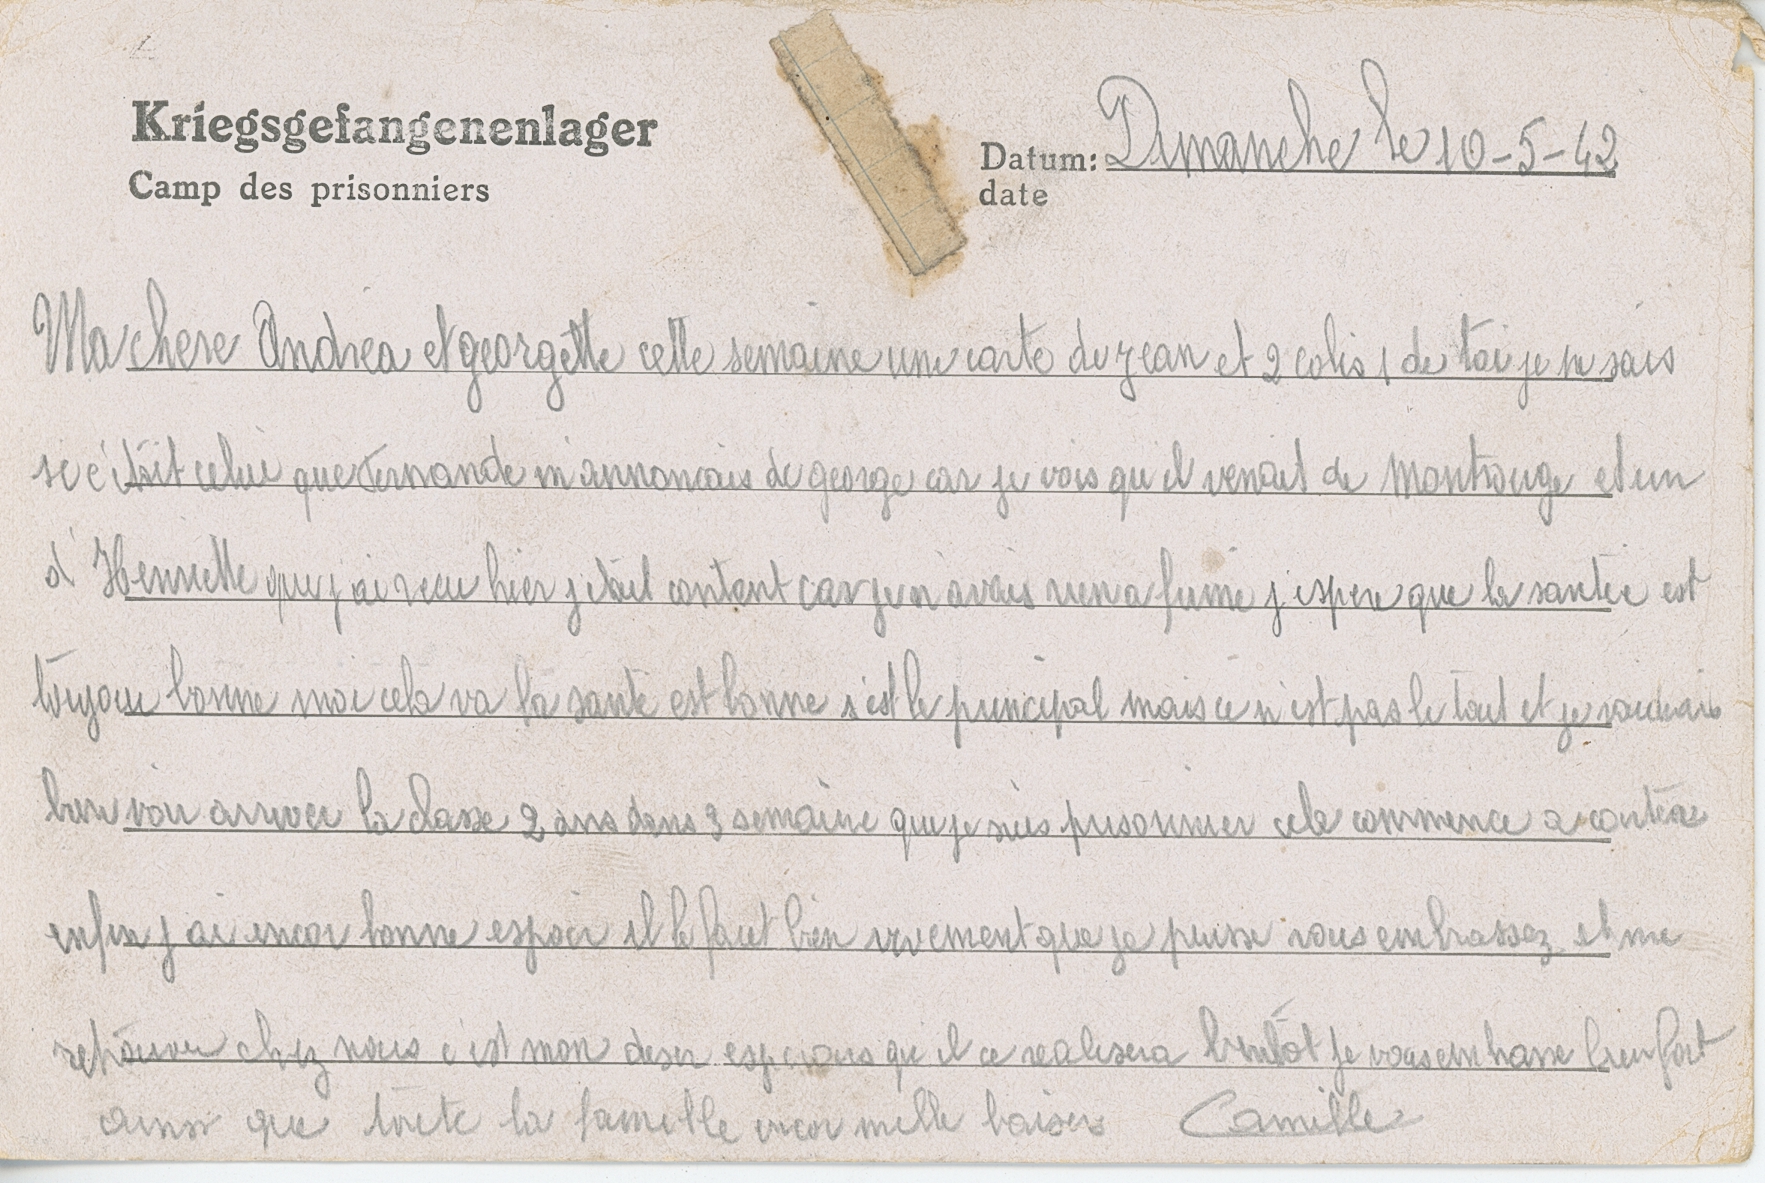 Kriegsgefangenenlager
Camp des prisonniers
Datum: Dimanche le 10-5-42
date
Ma chere Andrea et georgette cette semaine une carte de jean et 2 colis 1 de toi je ne sais
si c'était celui que Fernande m'annoncais de george car je vois qu'il venait de Montrouge et un
d'Henriette que j'ai recu hier j'etait content car je n'avais rien a fumé j'espere que la santée est
toujour bonne moi cela va la santé est bonne s'est le principal mais ce n'est pas le tout et je voudrais
bien voir arriver la classe 2 ans dans 3 semaine que je suis prisonnier cela commence a
enfin j'ai encor bonne espoir il le faut bien vivement que je puisse vous embrassez et me
retrouver chez nous c'est mon desir esperons qu'il ce realisera bientôt je vous embrasse bien fort
ainsi que toute la famille encor mille baisers Camille